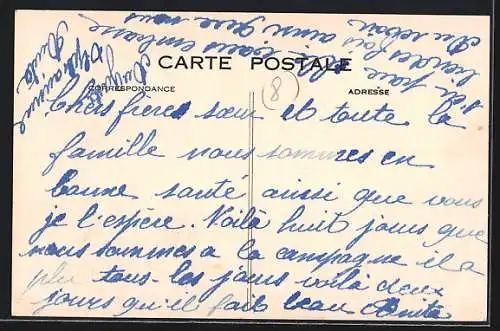 CARTE POSTALE
CORRESPONDANCE
ADRESSE
8
Chers frères sœur et toute la
famille nous sommes en
bonne santé ainsi que vous
je l'espère. Voilà huit jours que
nous sommes a la campagne il a
plu tous les jours voilà deux
jours qu'il fait beau Anita
ainsi que nous
vous embrasse
Au revoir